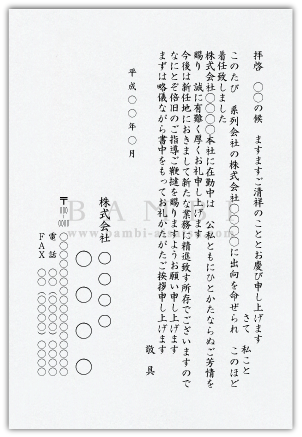 拝啓　○○の候　ますますご清祥のこととお慶び申し上げます
さて　私こと
このたび　系列会社の株式会社○○○○に出向を命ぜられ　このほど
着任致しました
株式会社○○○○本社に在勤中は　公私ともにひとかたならぬご芳情を
賜り　誠に有難く厚くお礼申し上げます
今後は新任地におきまして新たな業務に精進致す所存でございますので
なにとぞ倍旧のご指導ご鞭撻を賜りますようお願い申し上げます
まずは略儀ながら書中をもってお礼かたがたご挨拶申し上げます
敬具
平成○○年○月
株式会社○○○○
○○○○
〒○○○-○○○○
電話
FAX
BANBI
www.bambi-a